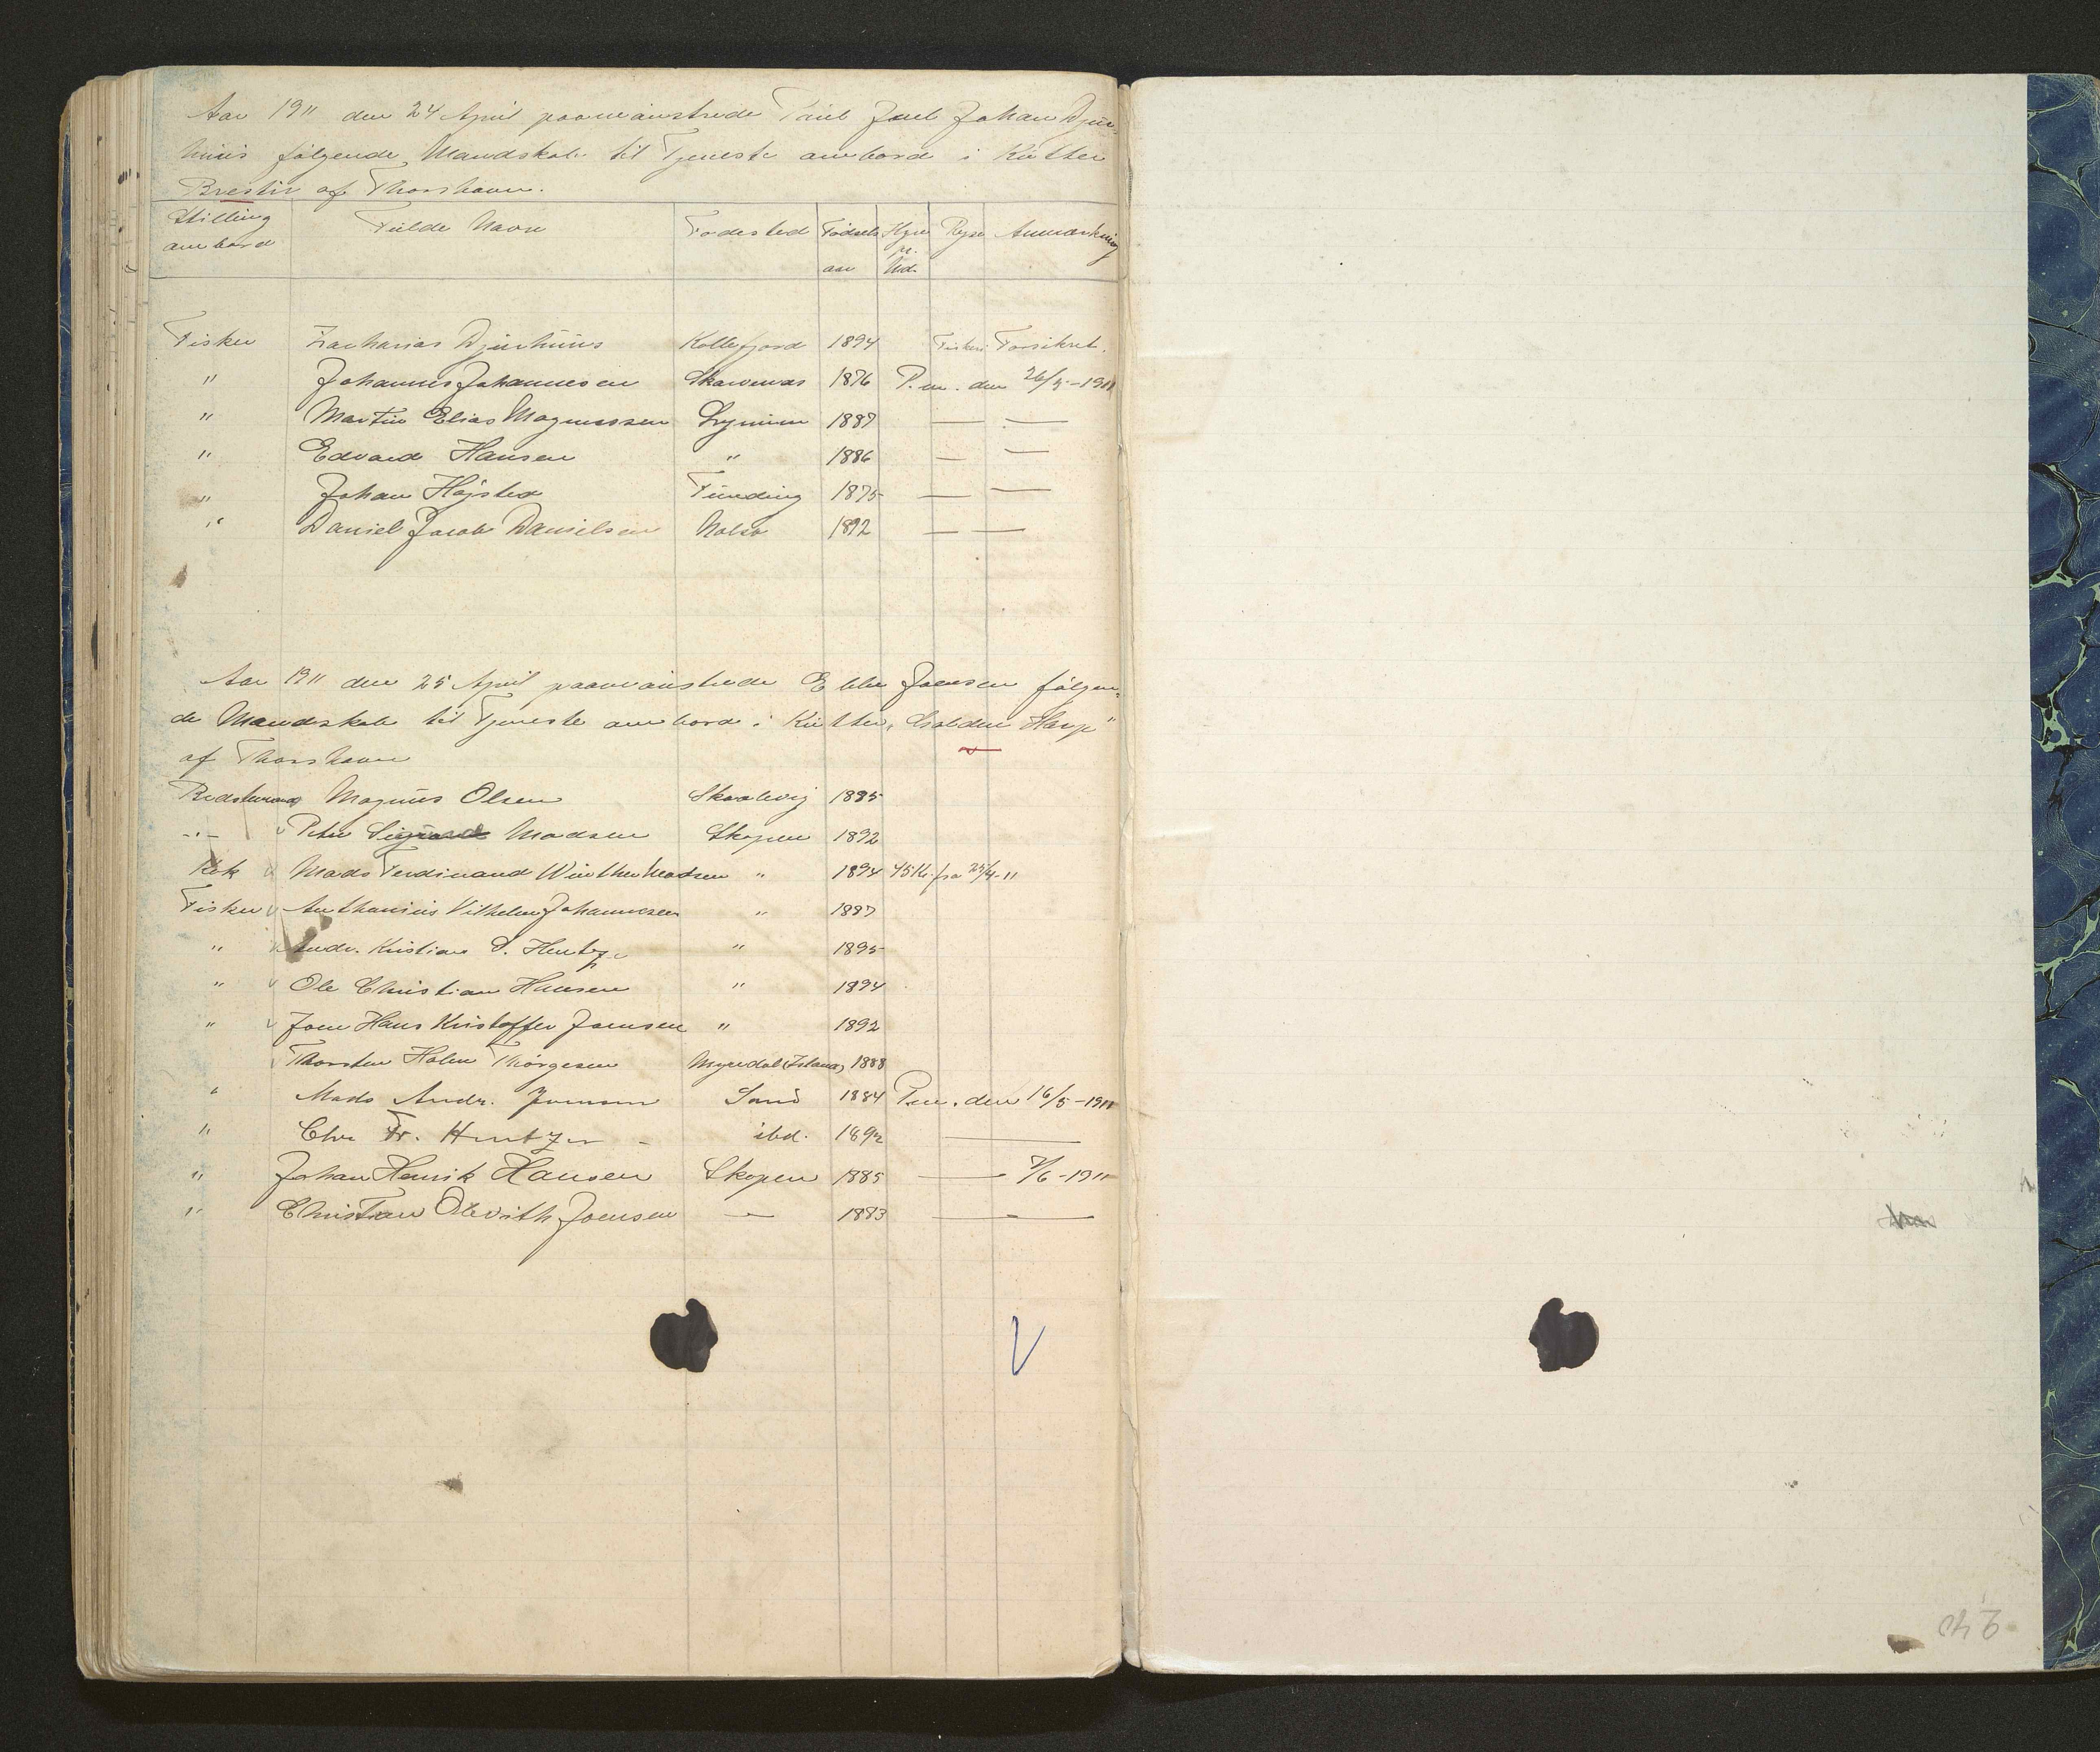 Aar 1911 den 24 April paamønstrede Paul Joel Johan Djur-
huus følgende Mandskab til Tjeneste ombord i Kutter
Brestir af Thorshavn.
Stilling ombord Fulde Navn Fødested Fødsels aar Hyre pr. Md. Rejse Anmærkning
Fisker Zacharias Djurhuus Kollefjord 1894 Fiskeri Forsikret.
" Johannes Johannesen Skarvenæs 1876 P.m. den 26/4-1911
" Martin Elias Magnussen Lynum 1887 — —
" Edvard Hansen " 1886 — —
" Johan Højsted Funding 1875 — —
" Daniel Jacob Danielsen Nolsø 1892 — —
Aar 1911 den 25 April paamønstrede Ebbe Joensen følgen-
de Mandskab til Tjeneste ombord i Kutter, Golden Harp"
af Thorshavn
Bedstemand Magnus Olsen Skaalevig 1885
-"- v Peter Madsen Skopen 1892
Kok v Mads Ferdinand Winther Madsen " 1894 45 Kr. fra 25/4-11
Fisker v Anthonius Vilhelm Johannesen " 1887
" v Andr. Kristian D. Hentze " 1895
" v Ole Christian Hansen " 1894
" v Joen Hans Kristoffer Joensen " 1892
Thorsten Holm Thørgesen Myredal (Island) 1888
" Mads Andr. Joensen Sand 1884 P.m. den 16/5-1911
" Chr. Fr. Hentzen - ibd. 1892 —
" Johan Henrik Hansen Skopen 1885 — 7/6-1911
" Christian Olevith Joensen — 1883 — —
V